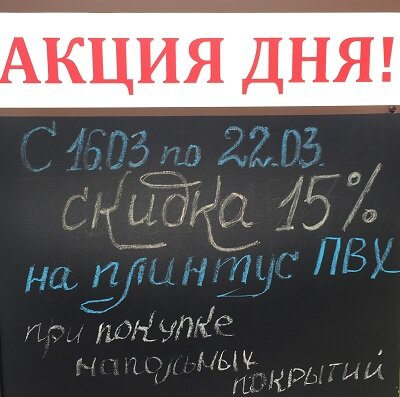 АКЦИЯ ДНЯ!
С 16.03 по 22.03.
скидка 15%
на плинтус ПВХ
при покупке
напольных
покрытий